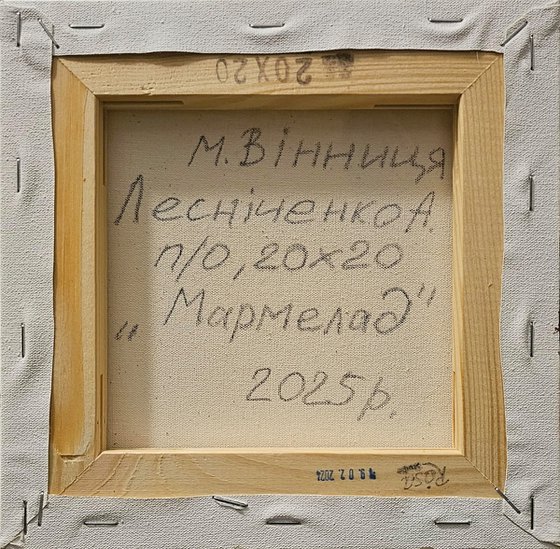 20X20
м.Вінниця
Лесніченко А.
п/о, 20х20
„Мармелад"
2025р.
19.02.2024
Rosa